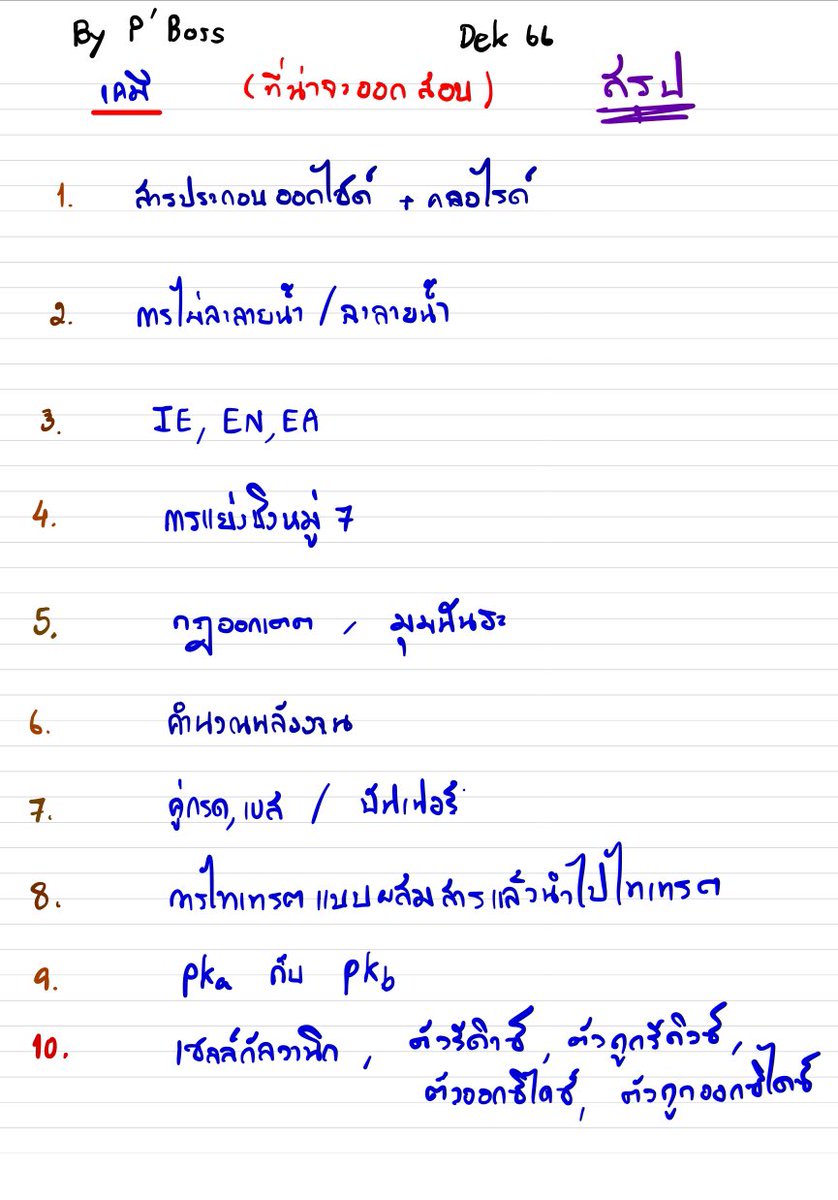 By P' Boss Dek 66
เคมี (ที่น่าจะออกสอบ) สรุป
1. สารประกอบออกไซด์ + คลอไรด์
2. การไม่ละลายน้ำ / ละลายน้ำ
3. IE, EN, EA
4. การแย่งชิงหมู่ 7
5. กฎออกเตต , มุมพันธะ
6. คำนวณพลังงาน
7. คู่กรด, เบส / บัฟเฟอร์
8. การไทเทรตแบบผสมสารแล้วนำไปไทเทรต
9. pka กับ pkb
10. เซลล์กัลวานิก , ตัวรีดิวซ์, ตัวถูกรีดิวซ์,
ตัวออกซิไดซ์, ตัวถูกออกซิไดซ์